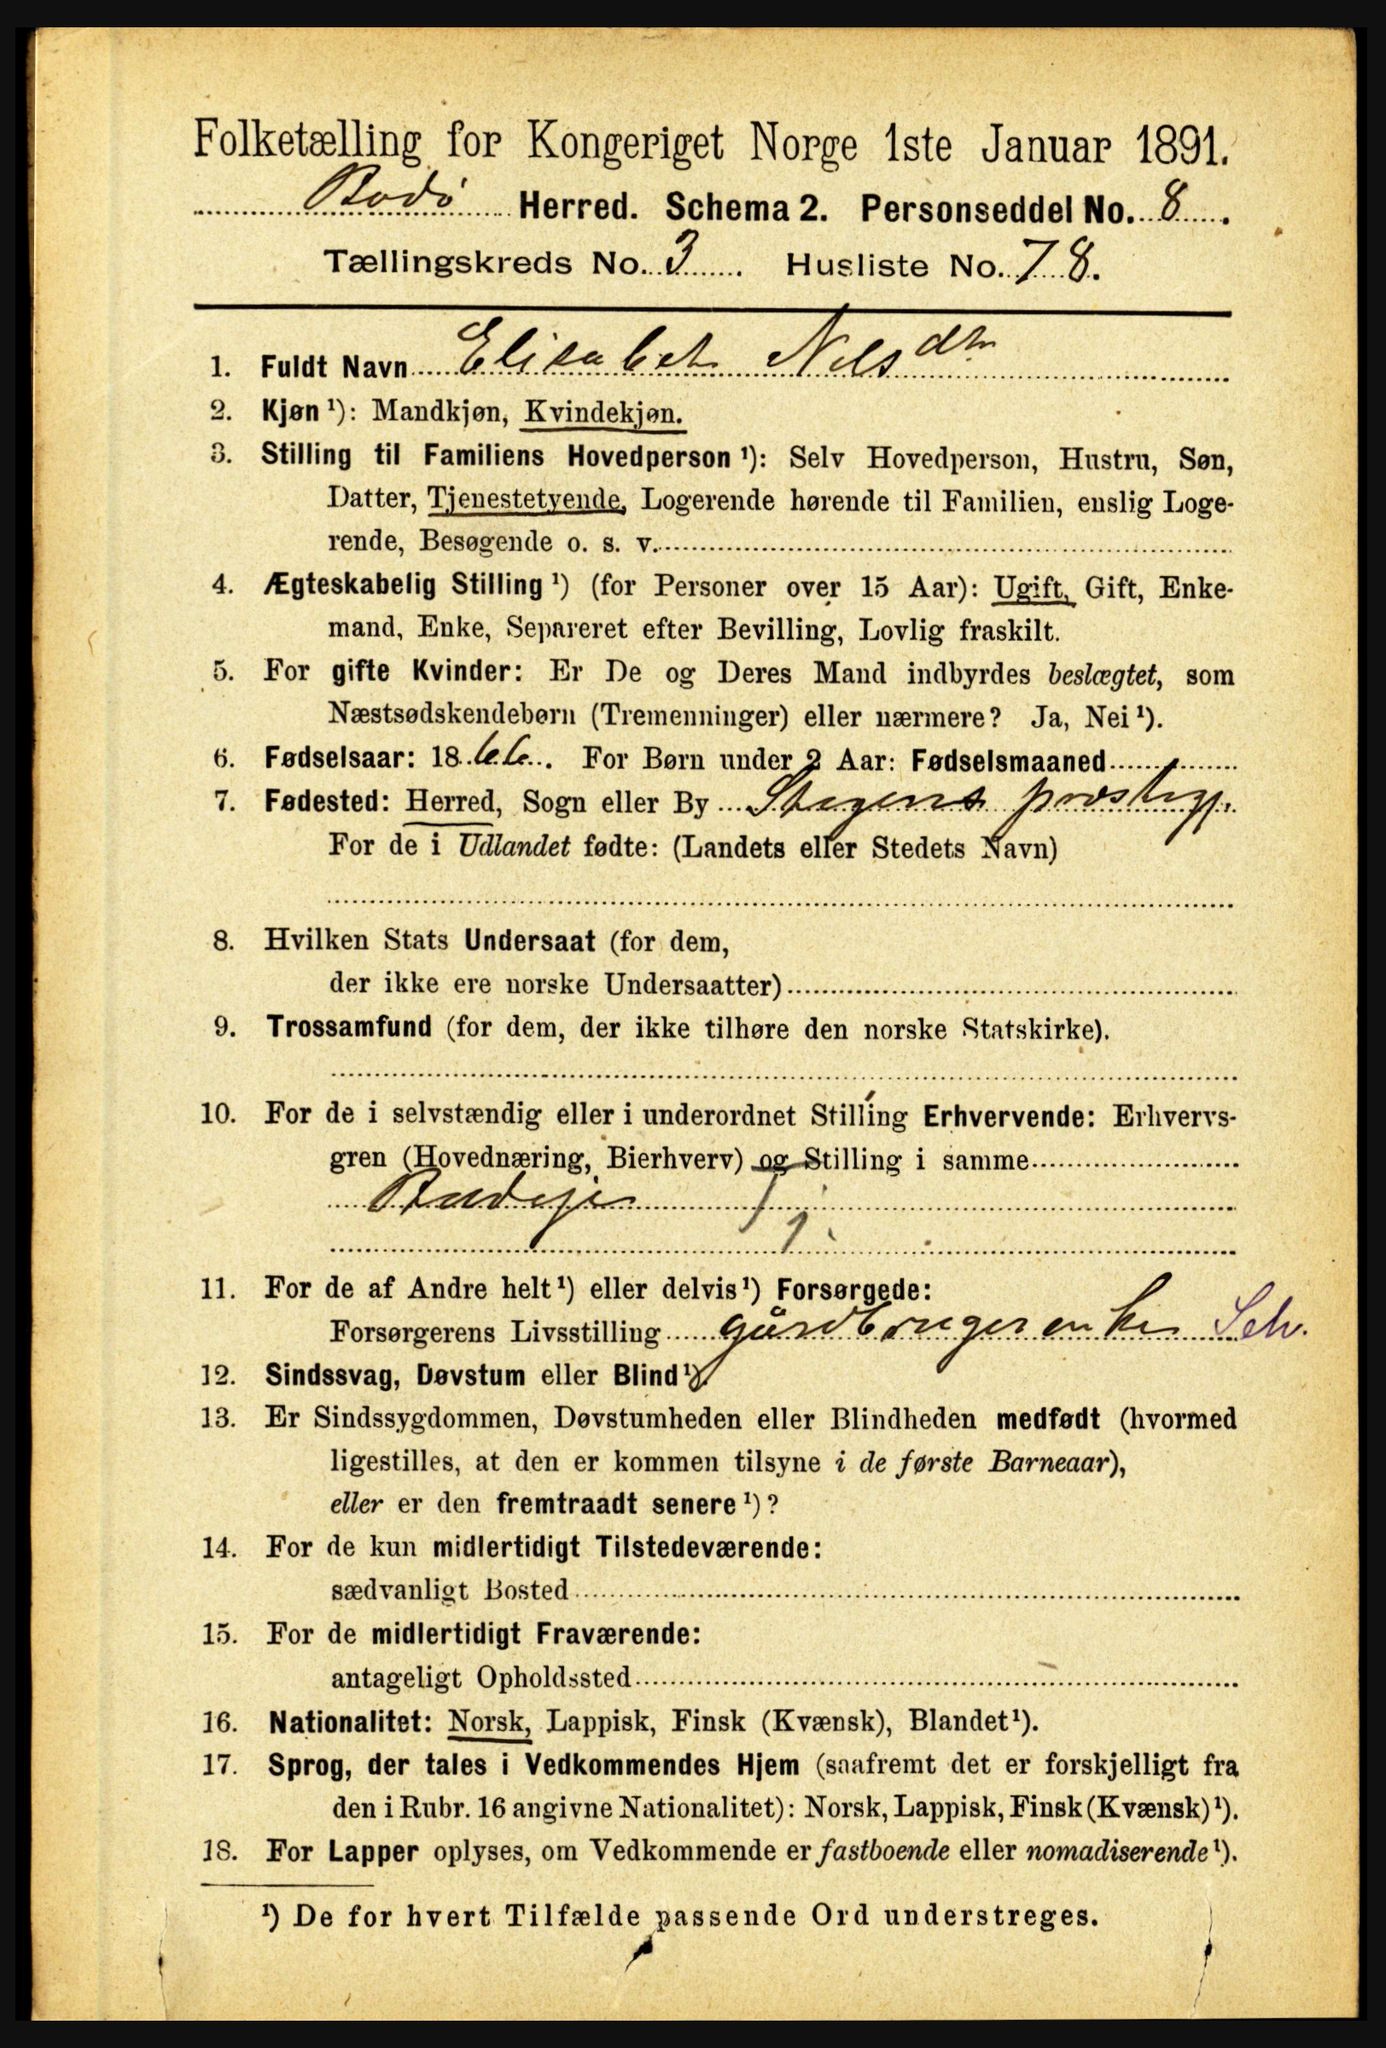 Folketælling for Kongeriget Norge 1ste Januar 1891.
Bodø Herred. Schema 2. Personseddel No. 8.
Tællingskreds No. 3. Husliste No. 78.
1. Fuldt Navn Elisabet Nilsdtr
2. Kjøn ¹): Mandkjøn, Kvindekjøn.
3. Stilling til Familiens Hovedperson ¹): Selv Hovedperson, Hustru, Søn,
Datter, Tjenestetyende, Logerende hørende til Familien, enslig Loge-
rende, Besøgende o. s. v.
4. Ægteskabelig Stilling ¹) (for Personer over 15 Aar): Ugift, Gift, Enke-
mand, Enke, Separeret efter Bevilling, Lovlig fraskilt.
5. For gifte Kvinder: Er De og Deres Mand indbyrdes beslægtet, som
Næstsødskendebørn (Tremenninger) eller nærmere? Ja, Nei ¹).
6. Fødselsaar: 1866. For Børn under 2 Aar: Fødselsmaaned
7. Fødested: Herred, Sogn eller By Stegens prestegj.
For de i Udlandet fødte: (Landets eller Stedets Navn)
8. Hvilken Stats Undersaat (for dem,
der ikke ere norske Undersaatter)
9. Trossamfund (for dem, der ikke tilhøre den norske Statskirke).
10. For de i selvstændig eller i underordnet Stilling Erhvervende: Erhvervs-
gren (Hovednæring, Bierhverv) og Stilling i samme
Budeje
11. For de af Andre helt ¹) eller delvis ¹) Forsørgede:
Forsørgerens Livsstilling gårdbrugerenke Selv.
12. Sindssvag, Døvstum eller Blind ¹).
13. Er Sindssygdommen, Døvstumheden eller Blindheden medfødt (hvormed
ligestilles, at den er kommen tilsyne i de første Barneaar),
eller er den fremtraadt senere ¹)?
14. For de kun midlertidigt Tilstedeværende:
sædvanligt Bosted
15. For de midlertidigt Fraværende:
antageligt Opholdssted
16. Nationalitet: Norsk, Lappisk, Finsk (Kvænsk), Blandet ¹).
17. Sprog, der tales i Vedkommendes Hjem (saafremt det er forskjelligt fra
den i Rubr. 16 angivne Nationalitet): Norsk, Lappisk, Finsk (Kvænsk) ¹).
18. For Lapper oplyses, om Vedkommende er fastboende eller nomadiserende ¹).
¹) De for hvert Tilfælde passende Ord understreges.